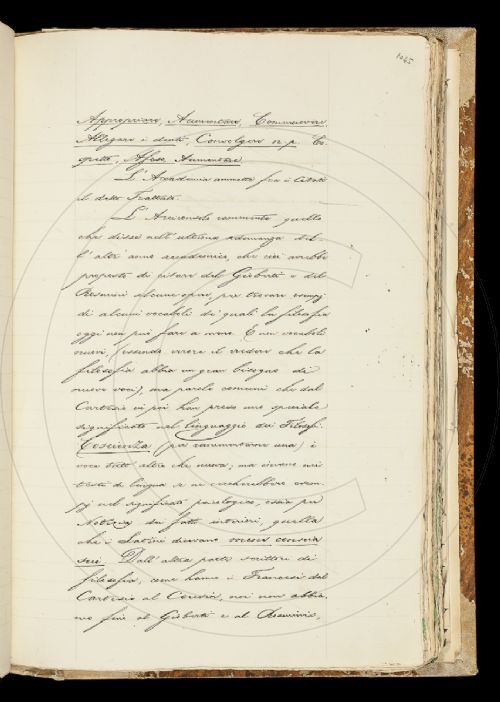 1045
Appropriare, Accumulare, Commuovere,
Allegare i denti, Convolgere
Aumentare
L'Accademia ammette fra i Citati
il detto Trattato.
L'Arciconsolo rammenta quello
che disse nell'ultima adunanza del
l'altr'anno accademico, che cioè avrebbe
proposto di citare del Gioberti e del
Rosmini alcune opere, per trovare esempj
di alcuni vocaboli de' quali la filosofia
oggi non può fare a meno. E non vocaboli
nuovi (essendo errore il credere che la
filosofia abbia un gran bisogno di
nuove voci), ma parole comuni che dal
Cartesio in poi han preso uno speciale
significato nel linguaggio dei Filosofi.
Coscienza (per rammentarne una) è
voce tutt'altro che nuova; ma invano nei
testi di lingua se ne cercherebbero esem
pj nel significato psicologico, ossia per
Notizia dei fatti interiori, quella
che i Latini dicevano mens conscia
sui. Dall'altra parte scrittori di
filosofia, come hanno i Francesi dal
Cartesio al Cousin, noi non abbia
mo fino al Gioberti e al Rosmini,